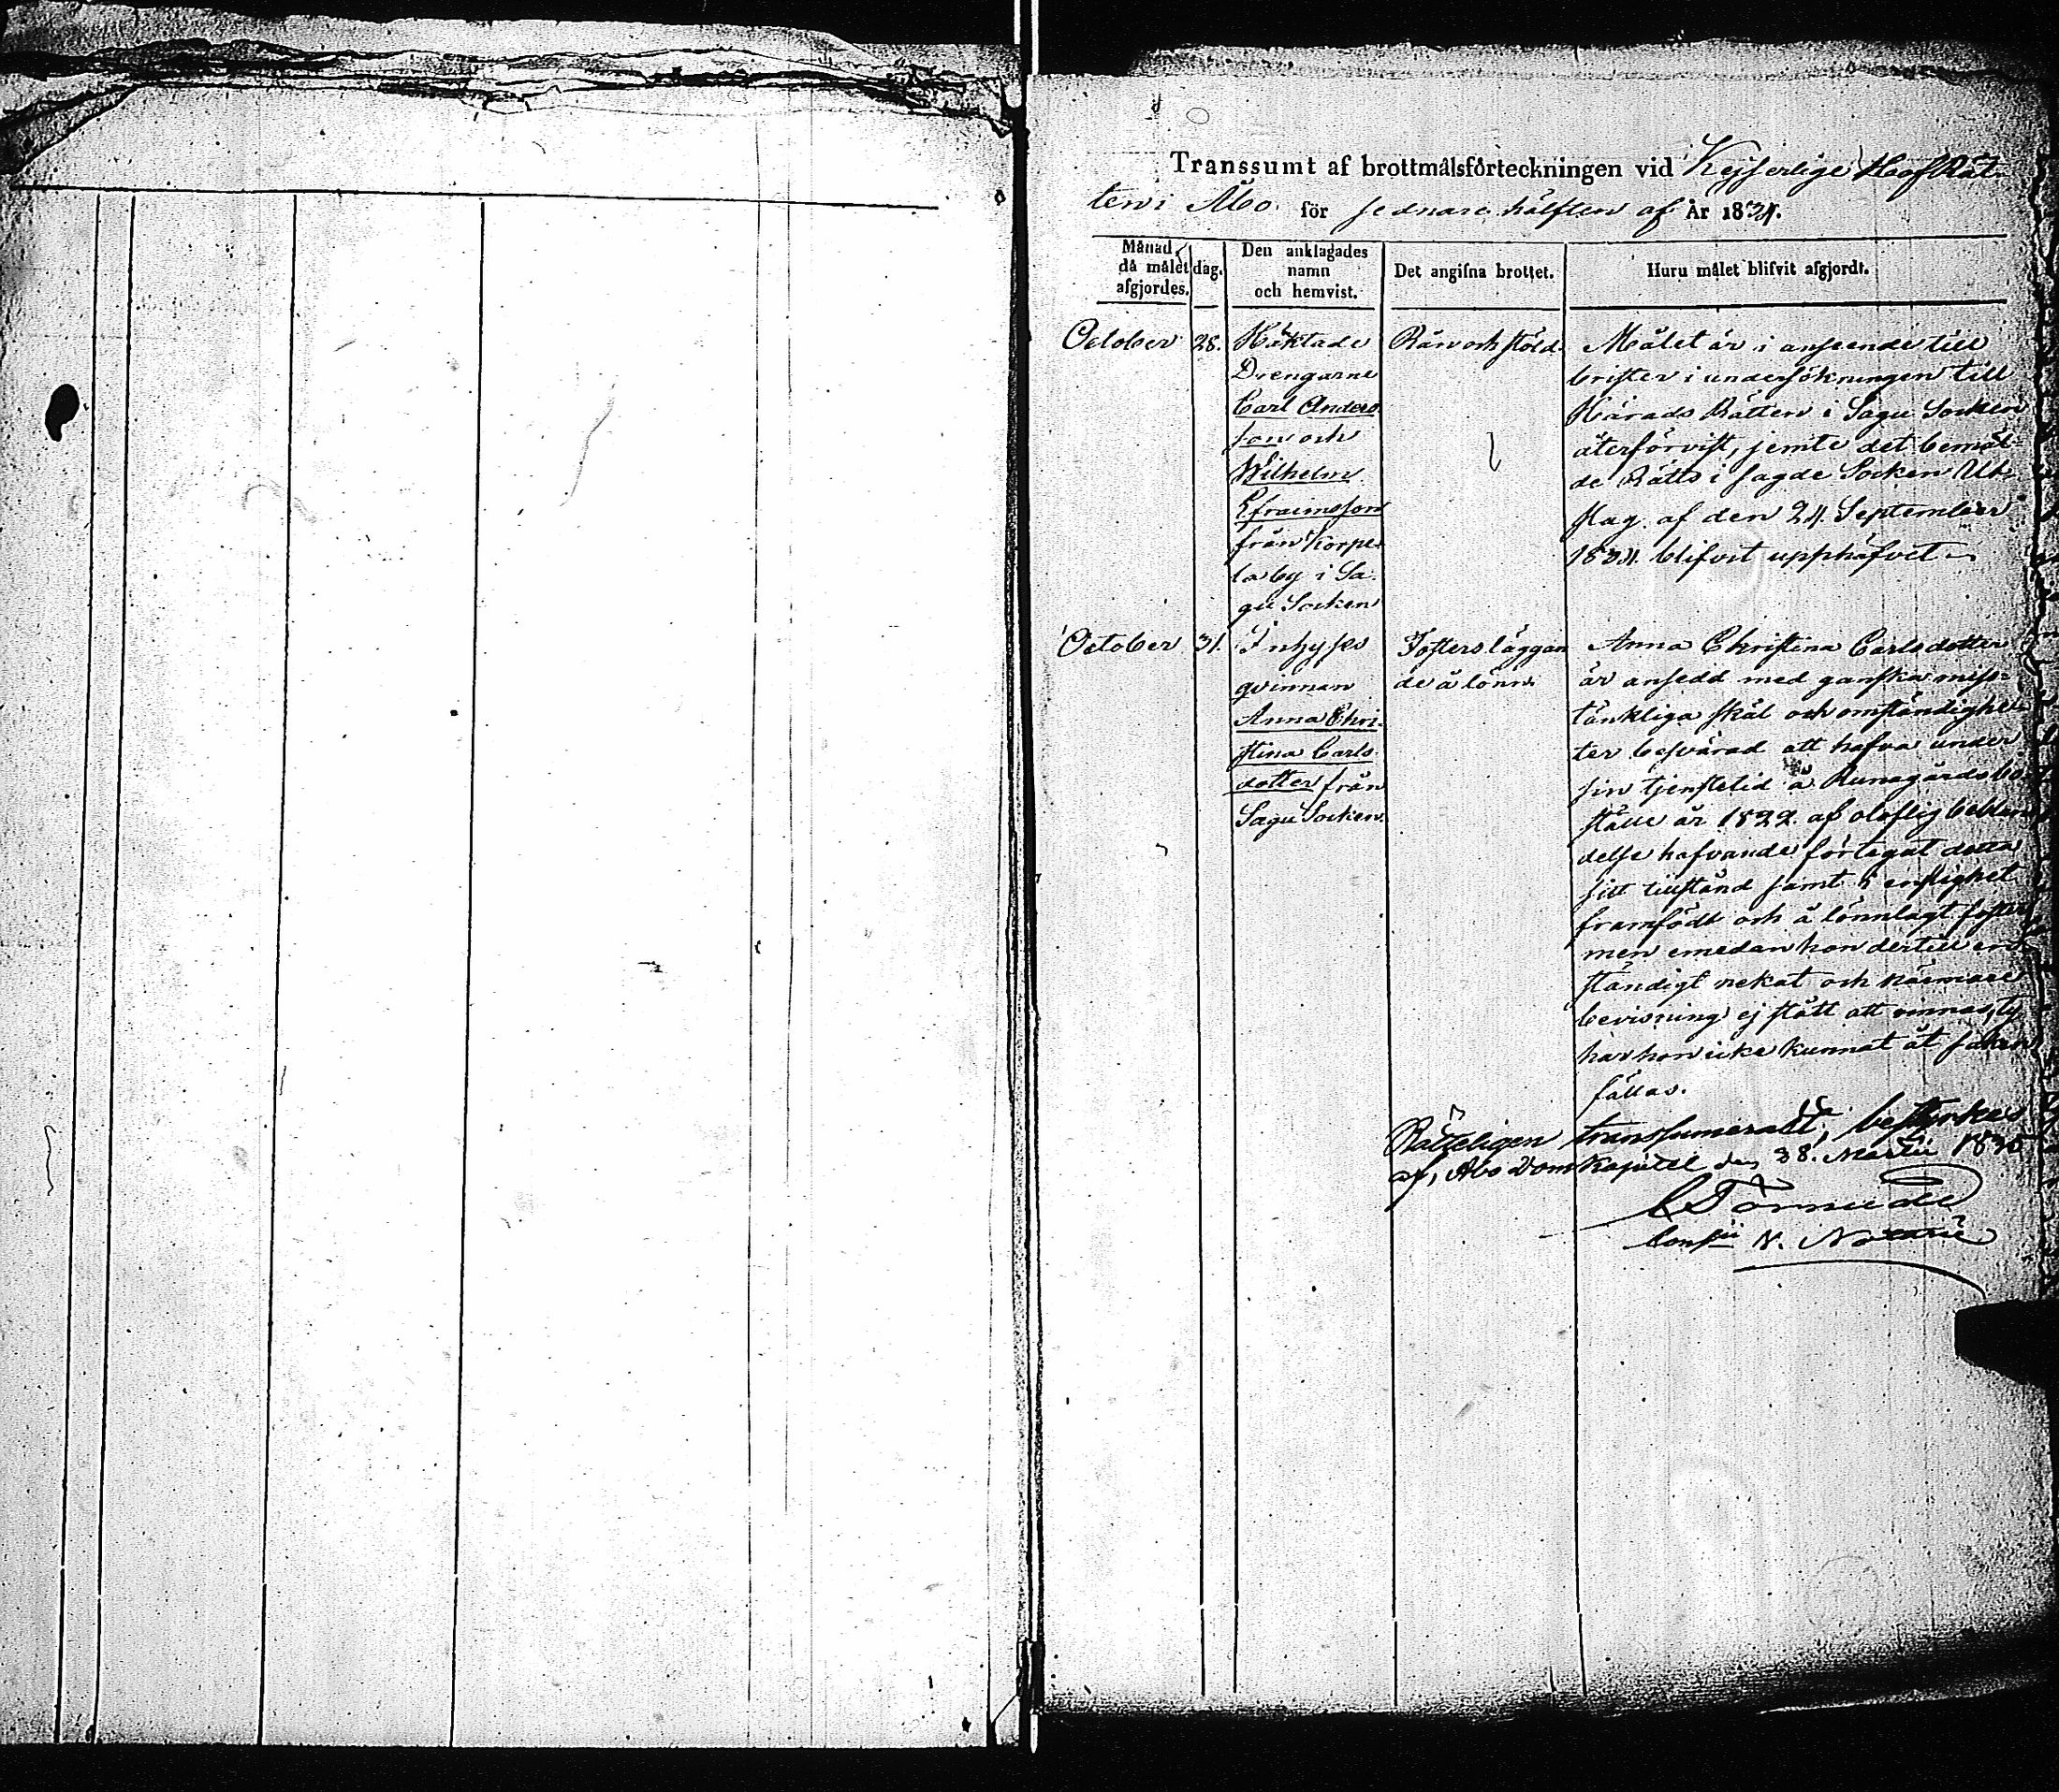 Transsumt af brottmålsförteckningen vid Kejserlige HofRät-
ten i Åbo för sednare hälften af År 1834.
Månad, då målet afgjordes.
dag.
Den anklagades namn och hemvist.
Det angifna brottet.
Huru målet blifvit afgjordt.
October 28.
Häktade
Drengarne
Carl Anders
son och
Wilhelm
Efraimsson
från Korpe-
la by i Sa-
gu Socken
Rån och stöld.
Målet är i anseende till
brister i undersökningen till
Härads Rätten i Sagu Socken
återförvist, jemte det bemäl-
de Rätts i sagde Socken Ut-
slag af den 24. September
1834. blifvit upphäfvet
October 31.
Inhyses
qvinnan
Anna Chri-
stina Carls-
dotter från
Sagu Socken.
Fosters läggan
de å lönn.
Anna Christina Carlsdotter
är ansedd med ganska miss-
tänkliga skäl och omständighe-
ter besvärad att hafva under
sin tjenstetid å Runagårds bo-
ställe år 1822. af oloflig beblan-
delse hafvande förtegat detta
sitt tillstånd samt i enslighet
framfödt och å lönnlagt foster
men emedan hon dertill en-
ständigt nekat och närmare
bevisning ej stått att vinnas, ty
har hon icke kunnat åt saken
fällas.
Rätteligen transsumeradt, bestyrkes
af, Åbo Domkapitel den 28. Martii 1835
C Törnudd
Consii N. Notarie